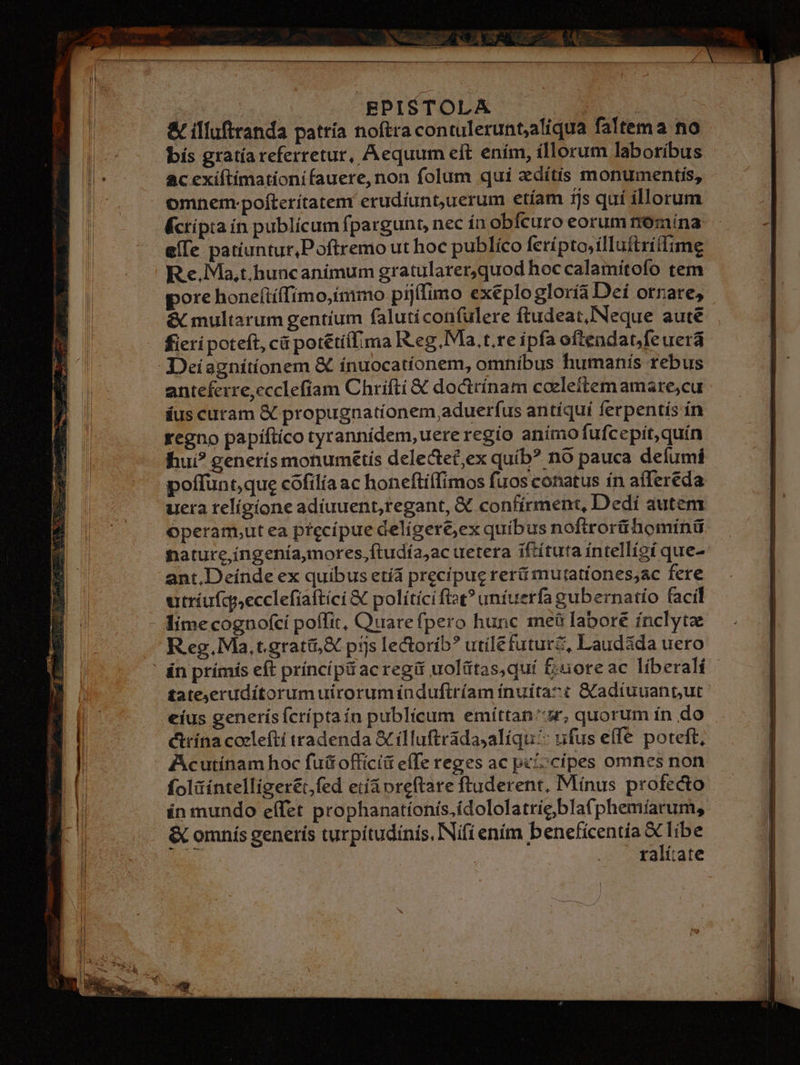 EPISTOLA
& illuſtranda patria noſtra contulerunt,aliqua ſaltem a no
bis gratia referretur, Aequum eſt enim, illorum laboribus
ac exiſtimationi fauere, non ſolum qui æditis monumentis,
omnem poſteritatem erudiunt,uerum etiam ijs qui illorum
ſcripta in publicum ſpargunt, nec in obſcuro eorum nomina
eſſe patiuntur,Poſtremo ut hoc publico ſcripto,illuſtriſſime
Re.Ma,t.hunc animum gratularer,quod hoc calamitoſo tem
pore honeſtiſſimo,immo pijſſimo exẽplo gloriã Dei ornare,
& multarum gentium ſaluti conſulere ſtudeat,Neque autẽ
fieri poteſt, cũ potẽtiſſima Reg.Ma.t.re ipſa oſtendat,ſe uerã
Dei agnitionem & inuocationem, omnibus humanis rebus
anteferre,eccleſiam Chriſti & doctrinam cœleſtem amare,cu
ius curam & propugnationem aduerſus antiqui ſerpentis in
regno papiſtico tyrannidem,uere regio animo ſuſcepit,quin
hui⁹ generis monumẽtis delectet,ex quib⁹ nõ pauca deſumi
poſſunt,que cõſilia ac honeſtiſſimos ſuos conatus in aſſerẽda
uera religione adiuuent,regant, & confirment, Dedi autem
operam,ut ea pręcipue deligerẽ,ex quibus noſtrorũ hominũ
naturę,ingenia,mores,ſtudia,ac uetera iſtituta intelligi que-
ant.Deinde ex quibus etiã pręcipuę rerũ mutationes,ac fere
utriuſq;,eccleſiaſtici & politici ſtat⁹ uniuerſa gubernatio facil
lime cognoſci poſſit, Quare ſpero hunc meũ laborẽ inclytæ
Reg.Ma,t.gratũ,& pijs lectorib⁹ utilẽ futurũ, Laudãda uero
in primis eſt principũ ac regũ uolũtas,qui fauore ac liberali
tate,eruditorum uirorum induſtriam inuitant & adiuuant,ut
eius generis ſcripta in publicum emittantur, quorum in do
ctrina cœleſti tradenda & illuſtrãda,aliquis uſus eſſe poteſt,
Ac utinam hoc ſuũ officiũ eſſe reges ac principes omnes non
ſolũ intelligerẽt,ſed etiã pręſtare ſtuderent, Minus profecto
in mundo eſſet prophanationis,idololatrię,blaſphemiarum,
& omnis generis turpitudinis, Niſi enim beneficentia & libe
ralitate